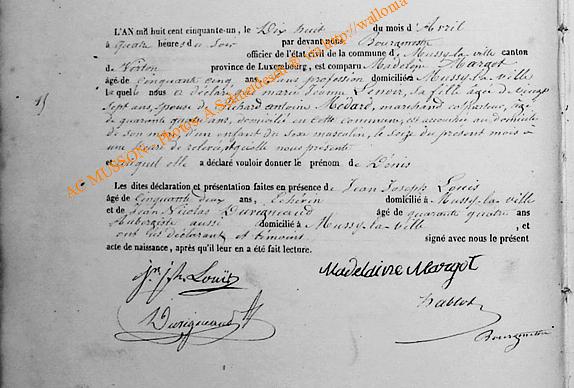 L'AN mil huit cent cinquante-un, le Dix huit du mois d'Avril
à quatre heures du soir par devant nous Bourgmestre
officier de l'état civil de la commune de Mussy-la-ville canton
de Virton province de Luxembourg, est comparu Madeleine Margot
âgé de cinquante cinq ans, sans profession domicilié à Mussy-la-ville
Le quelle nous a déclaré marie Jeanne Lenoir, sa fille âgée de vingt
15 sept ans, épouse de Richard antoine Médard, marchand colporteur, âgé
de quarante ans, domicilié en cette commune, est accouchée au domicile
de son mari d'un enfant du Sexe masculin, le Seize du présent mois à
une heure de relevée, qu'elle nous présente
et auquel elle a déclaré vouloir donner le prénom de Dénis
Les dites déclaration et présentation faites en présence de Jean Joseph Louis
âgé de Cinquante deux ans, domicilié à Mussy-la-ville
et de Jean Nicolas Duvigneaud âgé de quarante quatre ans
Aubergiste aussi domicilié à Mussy-la-ville, et
ont les déclarant et témoins signé avec nous le présent
acte de naissance, après qu'il leur en a été fait lecture.
Jn Jph Louis
Madeldine Margot
Duvigneaud
Bourgmestre
AC MUSSON - Photos A. Schneideser et via http://wallonia